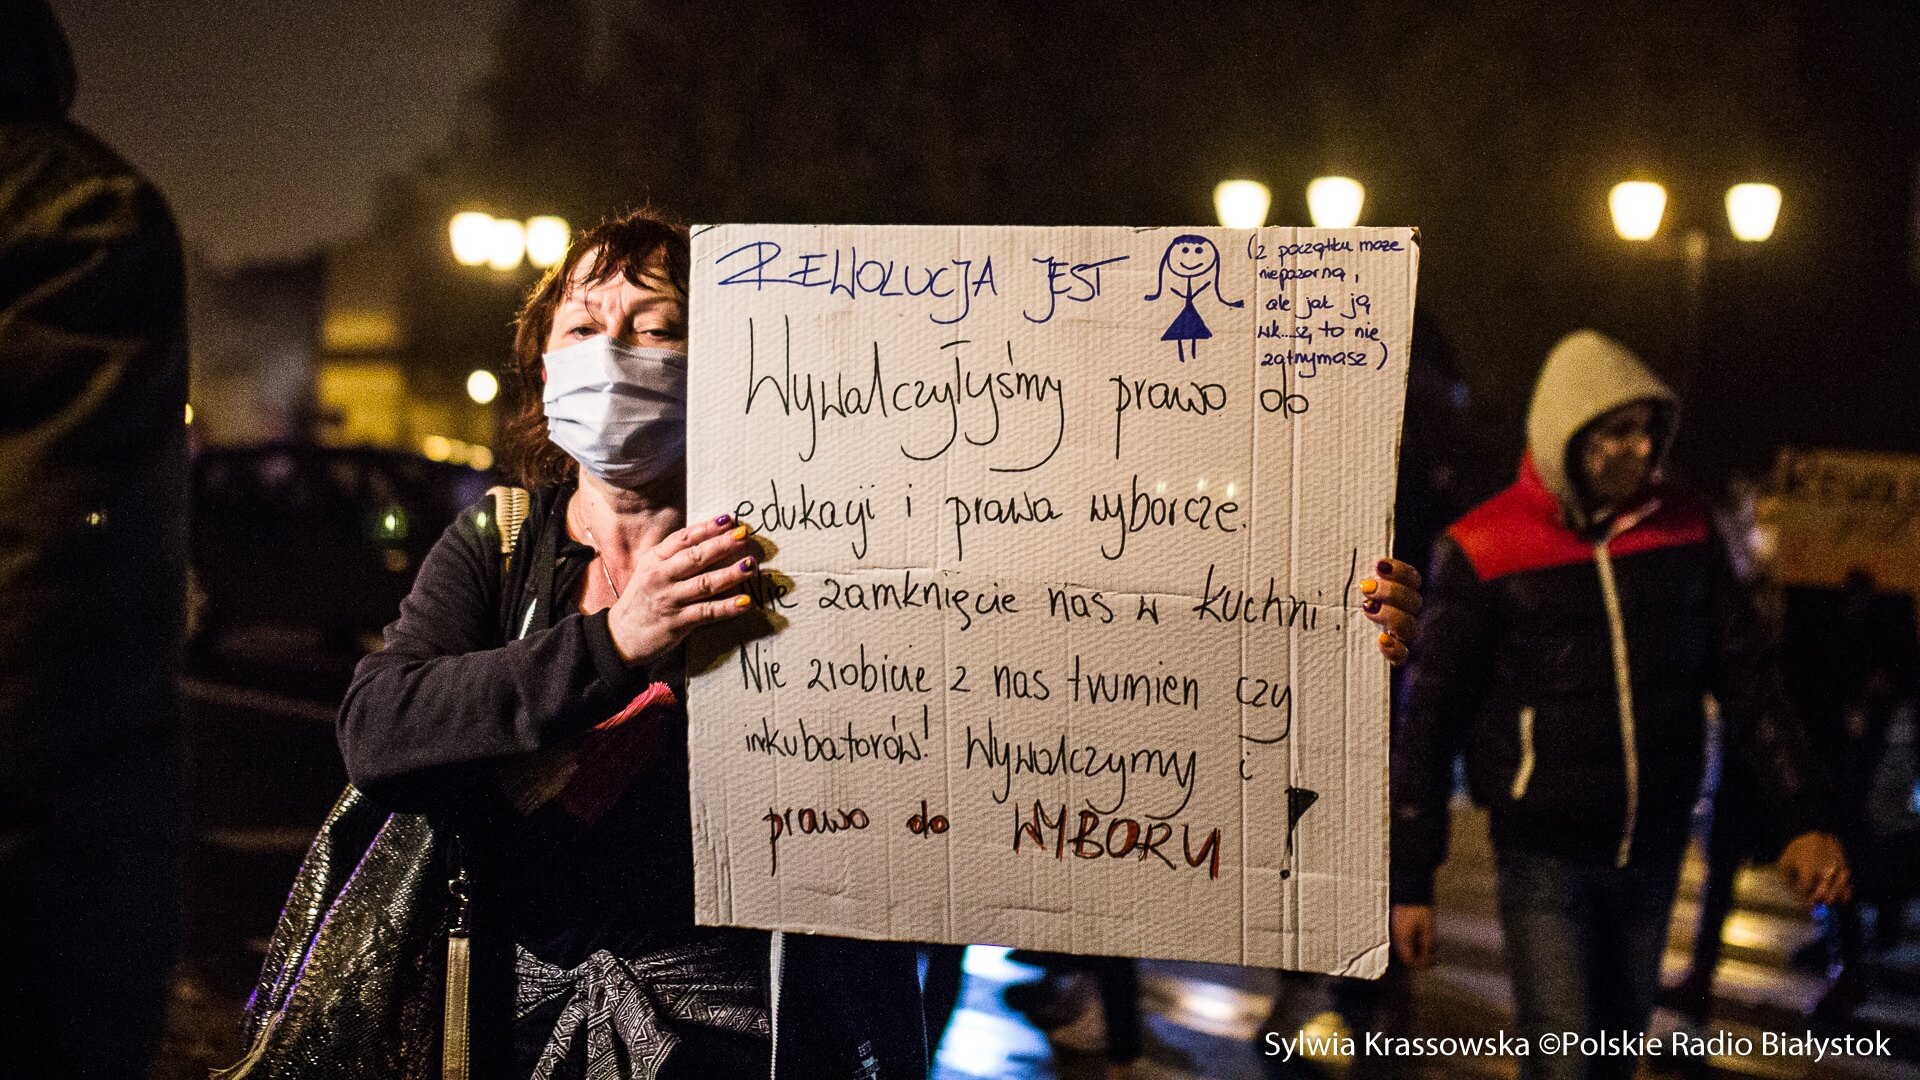 REWOLUCJA JEST
(z początku może
niepozorna,
ale jak ją
wk...sz, to nie
zatrzymasz)
Wywalczyłyśmy prawo do
edukacji i prawa wyborcze.
Nie zamkniecie nas w kuchni!
Nie zrobicie z nas trumien czy
inkubatorów! Wywalczymy i
prawo do WYBORU!
Sylwia Krassowska ©Polskie Radio Białystok